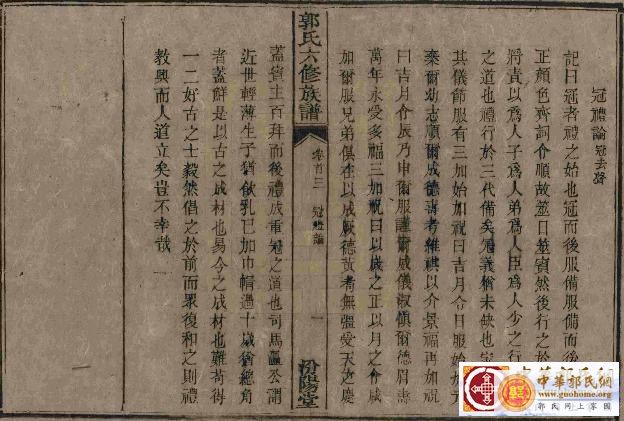 冠禮論 冠去聲
記曰冠者禮之始也冠而後服備服備而後
正顔色齊詞令順故筮日筮賓然後行之於
將責以爲人子爲人弟爲人臣爲人少之行
之道也禮行於三代備矣冠義猶未缺也
其儀節服有三加始加祝曰吉月令日始加元
棄爾幼志順爾成德壽考維祺以介景福再加祝
曰吉月令辰乃申爾服謹爾威儀淑慎爾德眉壽
萬年永受多福三加祝曰以歲之正以月之令咸
加爾服兄弟俱在以成厥德黃耉無疆受天之慶
郭氏六修族譜 卷首三 冠禮論 一 汾陽堂
蓋賓主百拜而後禮成重冠之道也司馬溫公謂
近世輕薄生子猶飲乳已加巾帽過十歲猶總角
者蓋鮮是以古之成材也易今之成材也難苟得
一二好古之士毅然倡之於前而眾復和之則禮
教興而人道立矣豈不幸哉
中華郭氏網
www.guohome.org
郭氏網上家園